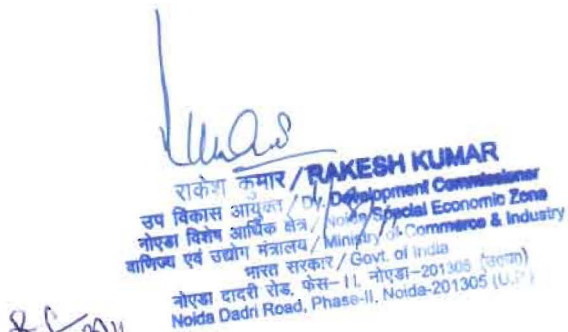 राकेश कुमार / RAKESH KUMAR
उप विकास आयुक्त / Dy. Development Commissioner
नोएडा विशेष आर्थिक क्षेत्र / Noida Special Economic Zone
वाणिज्य एवं उद्योग मंत्रालय / Ministry of Commerce & Industry
भारत सरकार / Govt. of India
नोएडा दादरी रोड, फेस-II, नोएडा-201305 (उ०प्र०)
Noida Dadri Road, Phase-II, Noida-201305 (U.P.)